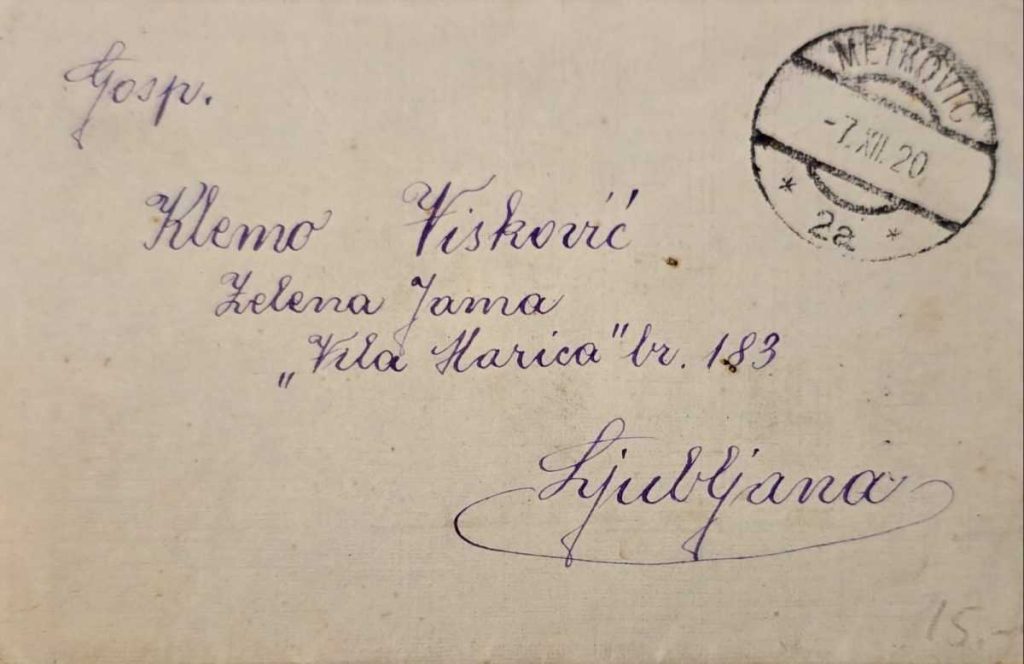 Gosp.
METKOVIĆ
-7.XII.20
* 2a *
Klemo Visković
Zelena Jama
„Vila Marica" br. 183
Ljubljana
15.-